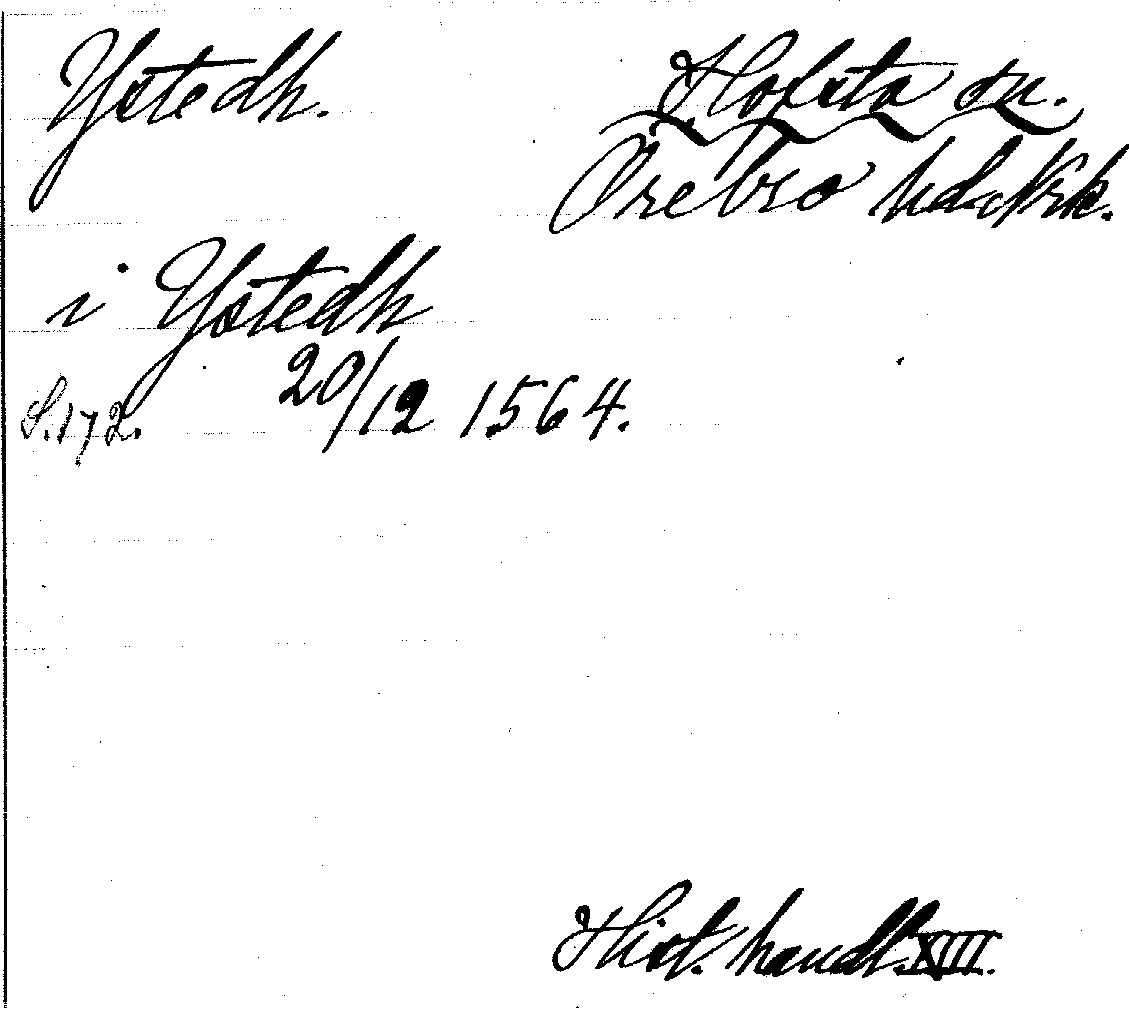 Ystedh.
Hofsta sn.
Örebro hd. Nrk.
i Ystedh
S. 172. 20/12 1564.
Hist. handl. XIII.